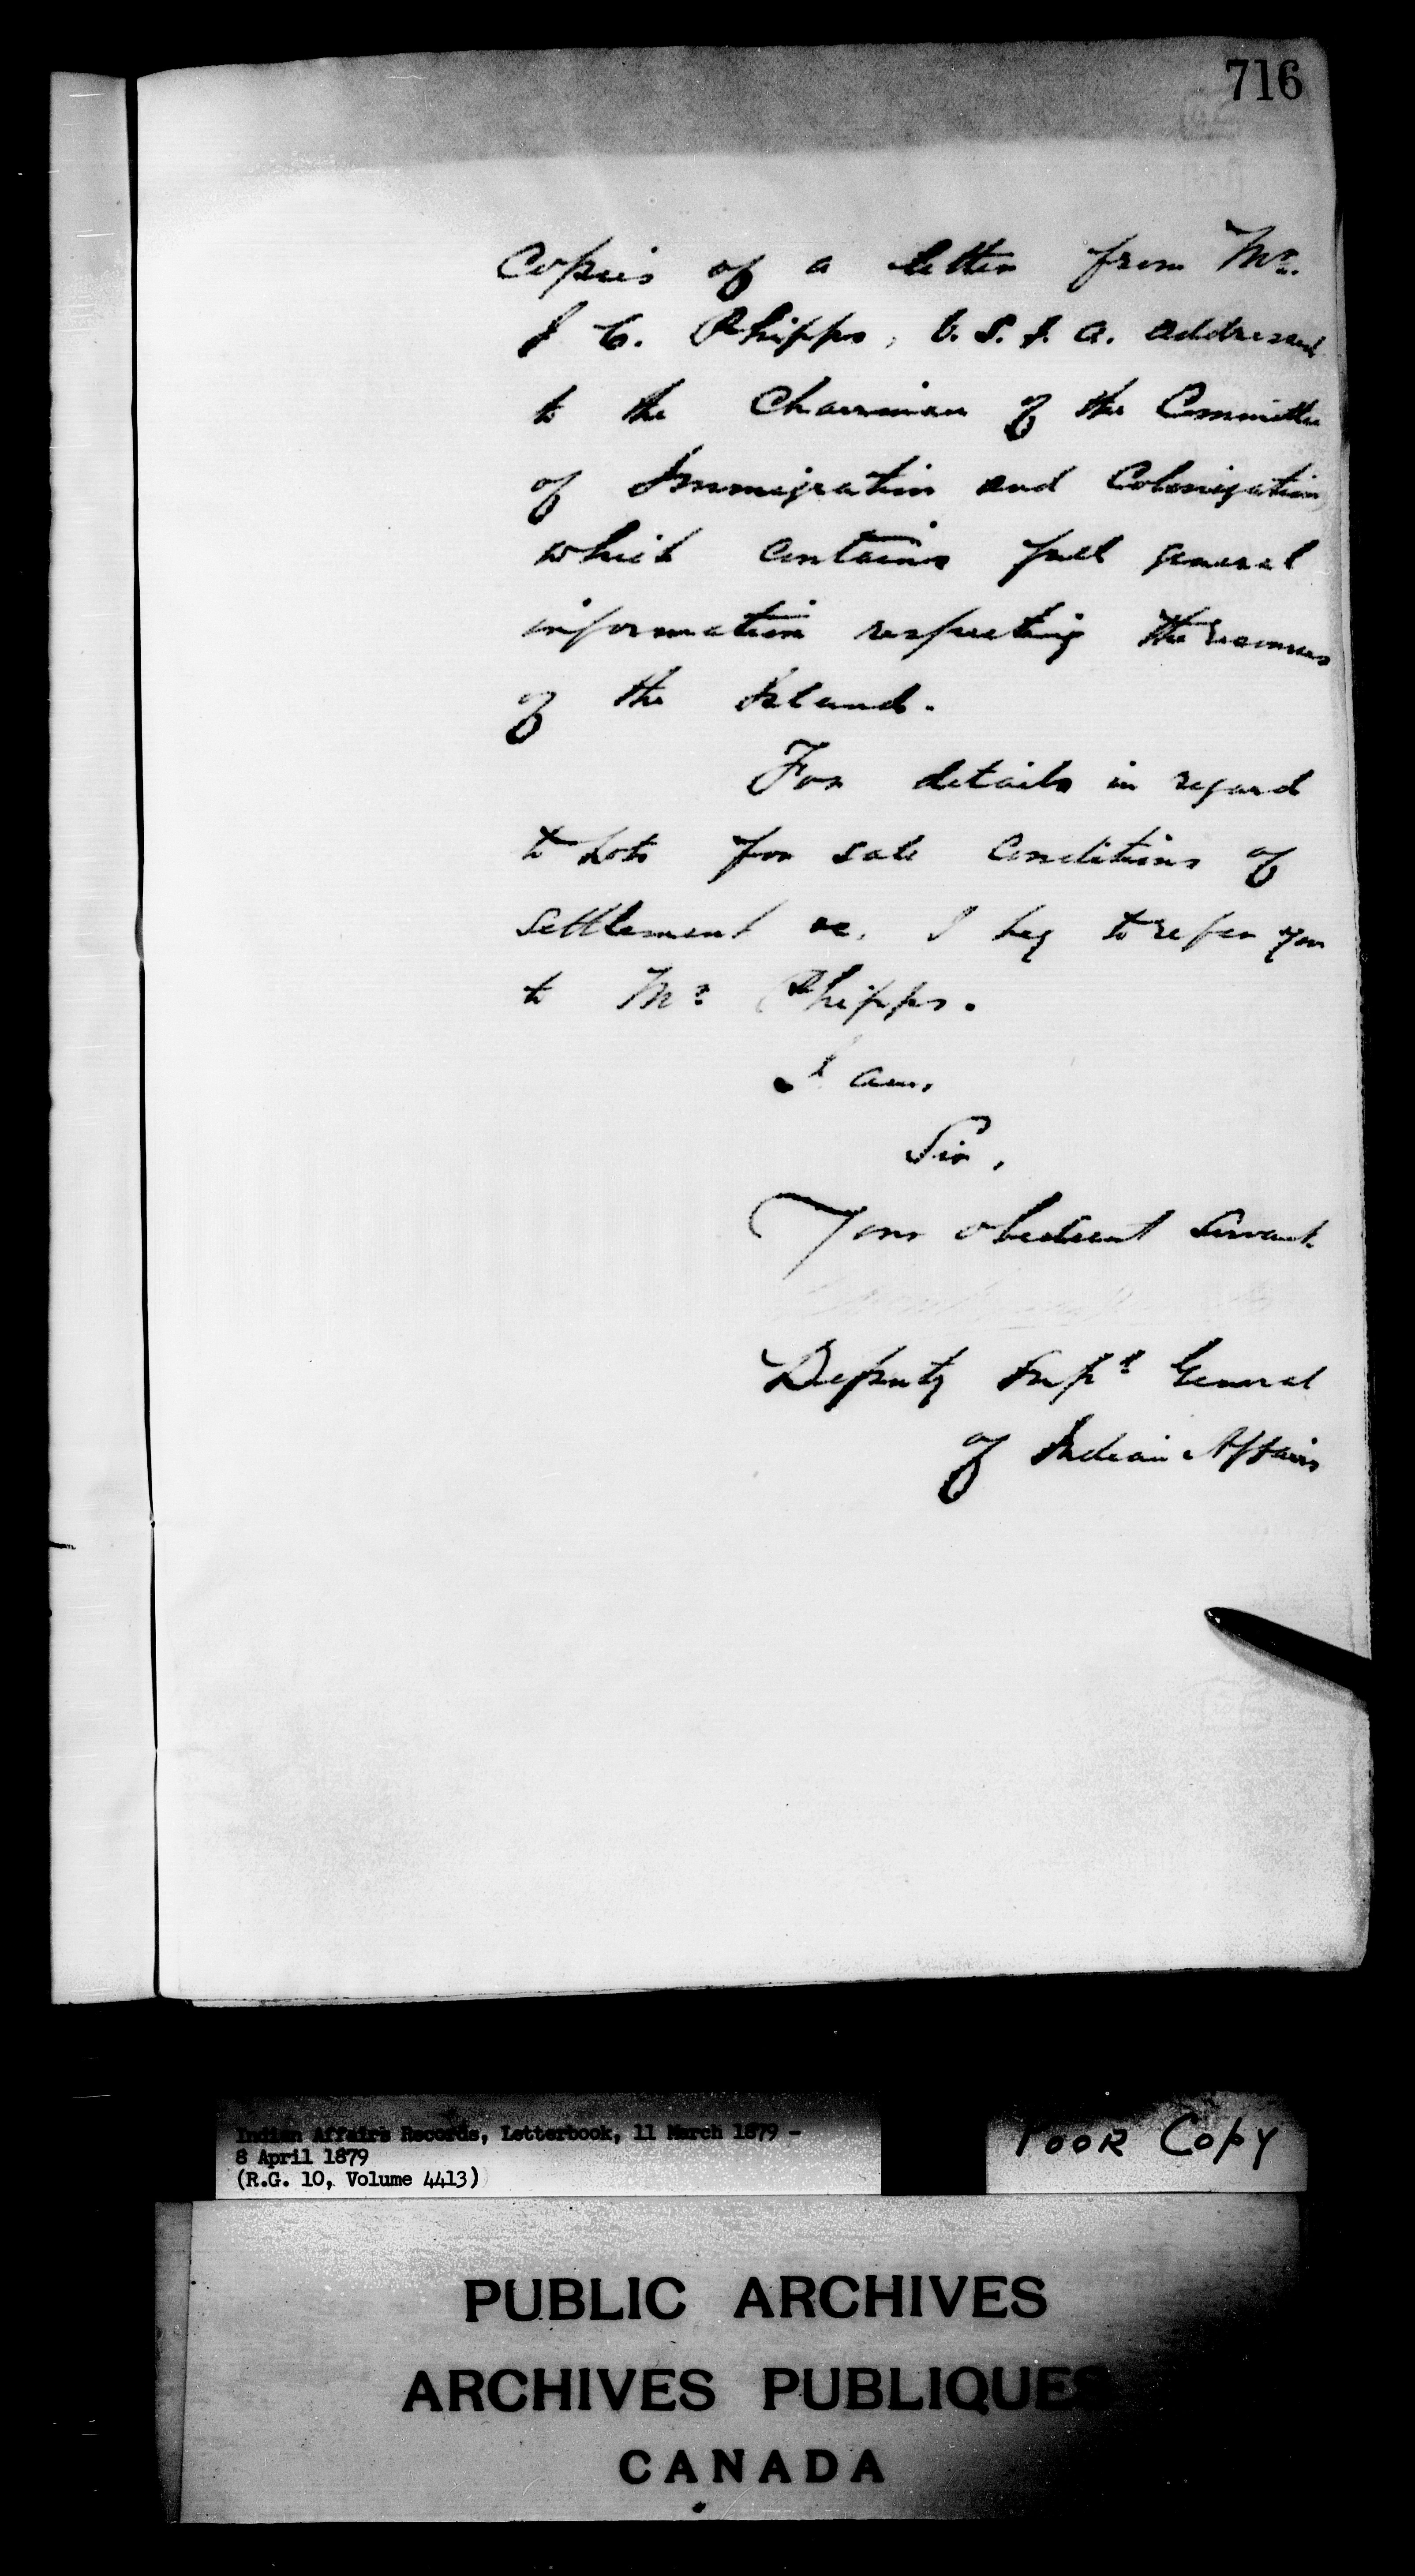 716
Copies of a letter from Mr.
J C. Phipps, V. S. I. A. addressed
to the Chairman of the Committee
of Immigration and Colonization,
which contains full general
information respecting the resources
of the Island.
For details in regard
to Lots for sale conditions of
settlement &c, I beg to refer you
to Mr Phipps.
I am,
Sir,
Your obedient Servant
Deputy Supt General
of Indian Affairs
Indian Affairs Records, Letterbook, 11 March 1879 -
8 April 1879
(R.G. 10, Volume 4413)
POOR COPY
PUBLIC ARCHIVES
ARCHIVES PUBLIQUES
CANADA